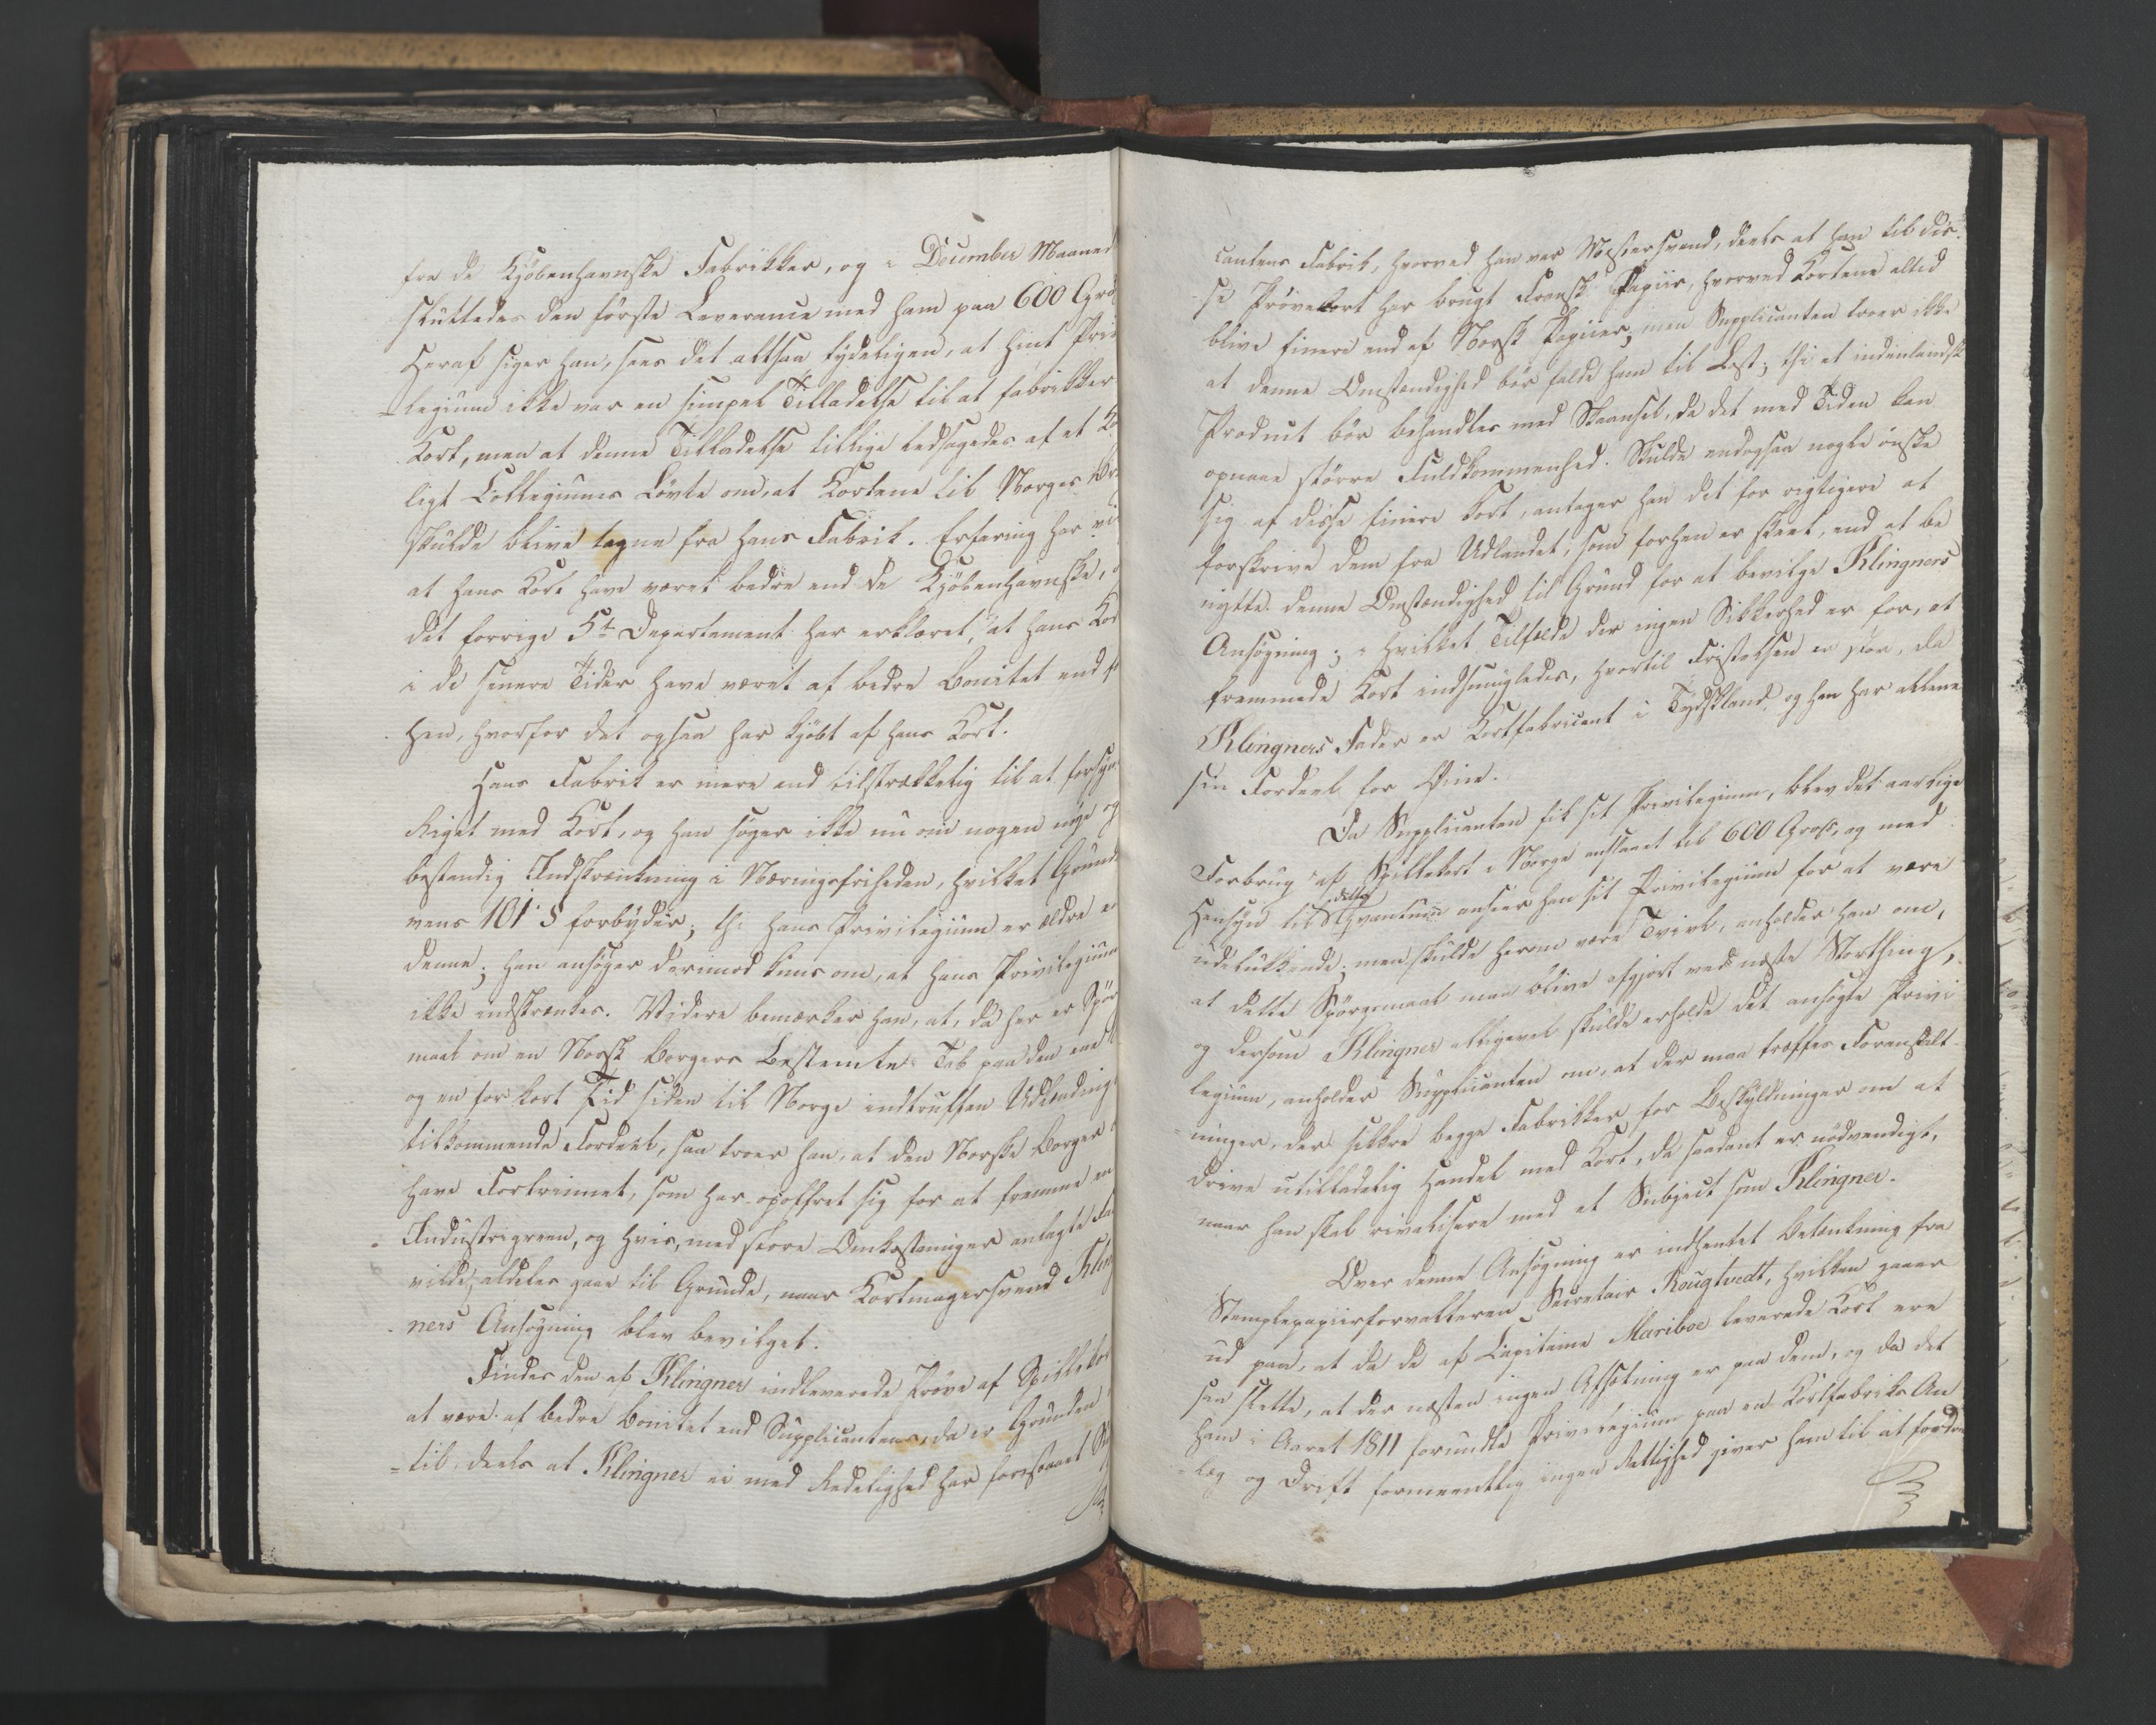 fra de Kjøbenhavnske Fabrikker, og i December Maaned
sluttedes den første Leverance med ham paa 600 Gro
Heraf siger han, sees det altsaa tydeligen, at hint Pri
legium ikke var en simpel Tilladelse til at fabrikker
Kort, men at denne Tilladelse tillige ledsagedes af et Ko
ligt Collegiums Løvte om, at Kortene til Norges
skulde blive tagne fra hans Fabrik. Erfaring har vi
at hans Kort have været bedre end de Kjøbenhavnske,
det forrige 5te Departement har erklæret, at hans Kor
i de senere Tider have været af bedre Bonitet end f
hen, hvorfor det ogsaa har kjøbt af hans Kort.
Hans Fabrik er mere end tilstrækkelig til at forsyn
Riget med Kort, og han søger ikke nu om nogen nye og
bestandig Indskrænkning i Næringsfriheden, hvilket Grund
vens 101 § forbyder; thi hans Privilegium er ældre e
denne; han ansøger derimod kuns om, at hans Privilegium
ikke indskrænkes. Videre bemærker han, at, da her er Spör
maal om en Norsk Borgers bestemte Tab paa den ene
og en for kort Tid siden til Norge indtruffen Udlændings
tilkommende Fordeel, saa troer han, at den Norske Borger
have Fortrinnet, som har opoffret sig for at fremme en
Industrigreen, og hvis, med store Omkostninger anlagte Fa
vilde aldeles gaae til Grunde, naar Kortmagersvend Kling
ners Ansøgning blev bevilget.
Findes den af Klingner indleverede Prøve af Spillekor
at være af bedre Bonitet end Supplicantens, da er Grunden
-til, deels at Klingner ei med Redelighed har forestaaet Su
cantens Fabrik, hvorved han var Mestersvend, deels at han til dis-
se Prøvekort har brugt Fransk Papiir, hvorved Kortene altid
blive finere end af Norsk Papiir; men Supplicanten troer ikke
at denne Omstændighed bør falde ham til Last; thi et indenlandsk
Product bør behandles med Skaansel, da det med Tiden kan
opnaae større Fuldkommenhed. Skulde endogsaa nogle ønske
sig af disse finere Kort, antager han det for rigtigere at
forskrive dem fra Udlandet, som forhen er skeet, end at be
nytte denne Omstændighed til Grund for at bevilge Klingners
Ansøgning; i hvilket Tilfælde der ingen Sikkerhed er for, at
fremmede Kort indsmugledes, hvortil Fristelsen er stor, da
Klingners Fader er Kortfabricant i Tydskland, og han har allene
sin Fordeel for Øine.
Da Supplicanten fik sit Privilegium, blev det aarlige
Forbrug af Spillekort i Norge anslaaet til 600 Gross, og med
Hensyn til dette Qvantum anseer han sit Privilegium for at være
udelukkende; men skulde herom være Tvivl, anholder han om,
at dette Spørgsmaal maa blive afgjort ved næste Storthing,
og dersom Klingner alligevel skulde erholde det ansøgte Privi
legium, anholder Supplicanten om, at der maa træffes Foranstalt
-ninger, der sikkre begge Fabrikker for Beskyldninger om at
drive utilladelig Handel med Kort, da saadant er nødvendigt,
naar han skal rivalisere med et Subject som Klingner.
Over denne Ansøgning er indhentet Betænkning fra
Stemplepapiirforvalteren Secretair Rougtvedt, hvilken gaaer
ud paa, at da de af Capitaine Mariboe leverede Kort ere
saa slette, at der næsten ingen Afsætning er paa dem, og da det
ham i Aaret 1811 forundte Privilegium paa en Kortfabriks An
-læg og Drift formeentlig ingen Rettighed giver ham til at fordre